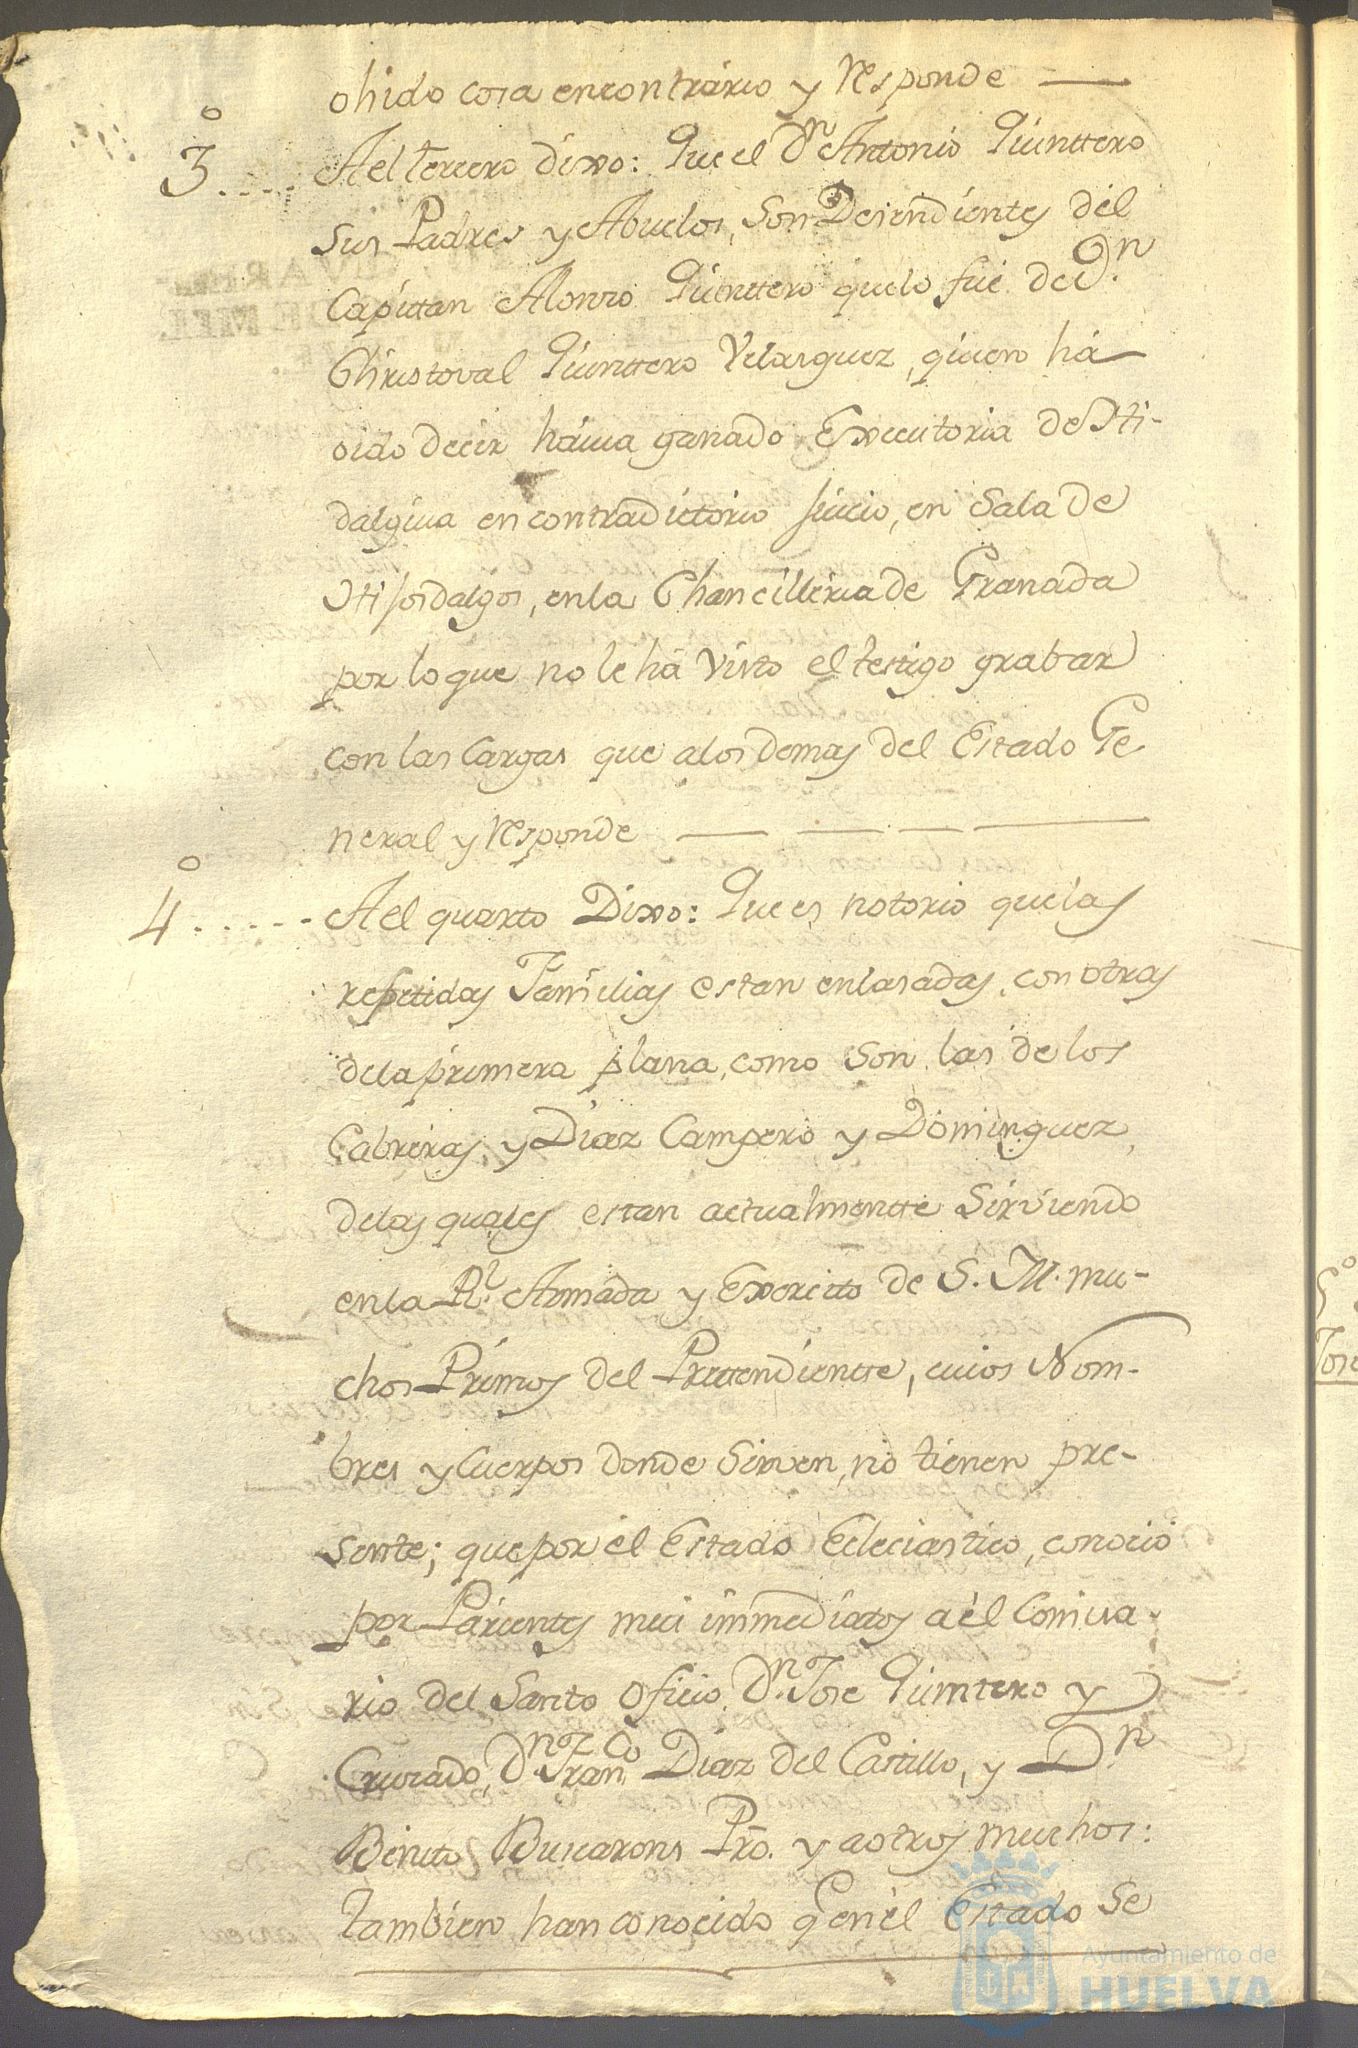 ohido cosa encontrario y responde —
3º..... A el tercero dixo: Que el Dn. Antonio Quinttero
sus Padres y Abuelos, son Desendientes del
Capittan Alonzo Quinttero que lo fue de Dn.
Christoval Quinttero Velasquez, quien há
oido decir havia ganado Executoria de Hi-
dalguia en contradictorio juicio, en Sala de
Hijosdalgos, en la Chancilleria de Granada
por lo que no le há visto el testigo grabar
con las Cargas que a los demas del Estado Ge
neral y responde — — — —
4º..... A el quarto Dixo: Que es notorio que las
repetidas Familias estan enlasadas, con otras
de la primera plana, como son las de los
Cabreras, y Diaz Campero y Dominguez,
de las quales estan actualmentte Sirviendo
en la Rl. Armada y Exercitto de S. M. mu-
chos Primos del Prettendientte, cuios Nom-
bres y Cuerpos donde Sirven, no tienen pre-
sente; que por el Estado Eclesiastico, conocio
por Parientes mui immediatos a el Comisa-
rio del Santo Oficio, Dn. Jose Quinttero y
Crusado, Dn. Franco. Diaz del Castillo, y Dn.
Benito Buscarons Pro. y a otros muchos:
tambien han conocido q en el Estado Se
5º
Jose
Ayuntamiento de
HUELVA